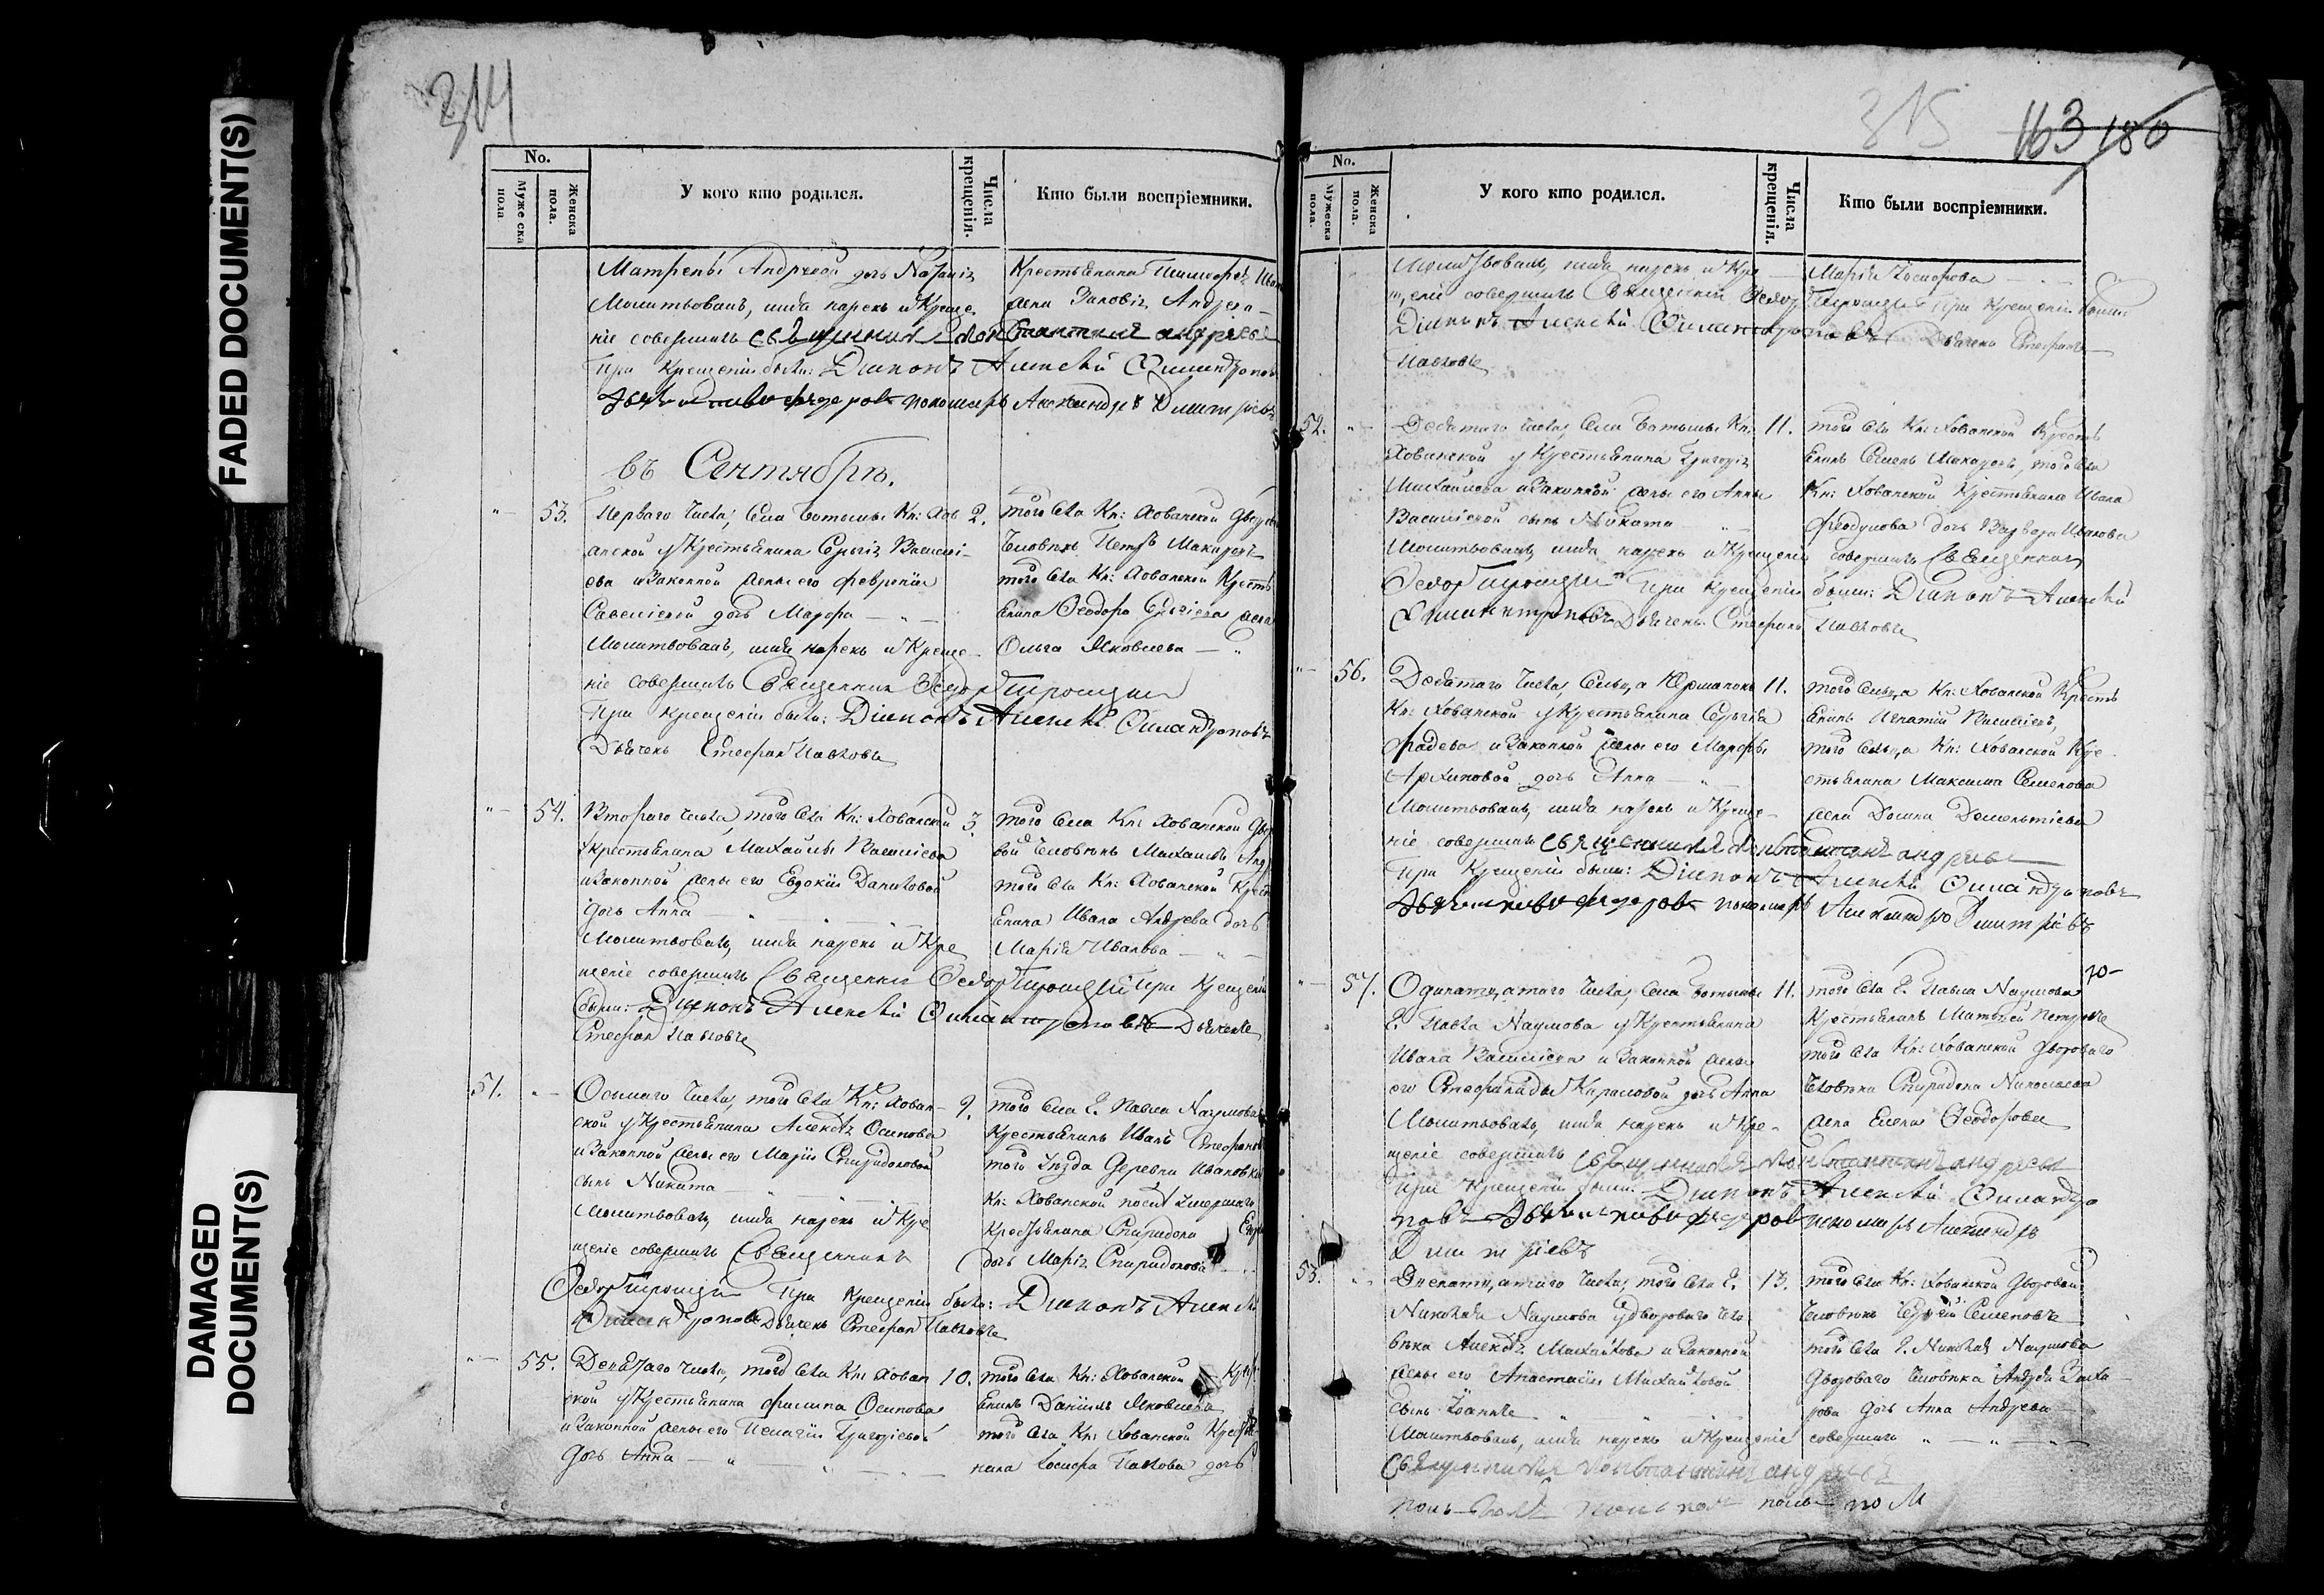 FADED DOCUMENT(S)
DAMAGED
DOCUMENT(S)
314
No.
Мужеска пола
Женска пола.
У кого кто родился.
Числа крещенія.
Кто были воспріемники.
Матрены Андреевой дочь
Молитвовалъ, имя нарекъ и Креще
ніе совершилъ Священникъ Константинъ Андреевъ
При Крещеніи были: Діаконъ Алексѣй
пономарь Александръ Дмитріевъ
Крестьянина
жена Андреева
въ Сентябрѣ.
"— 53. Перваго числа, Села Кн: Хов 2.
анской у Крестьянина Сергія Василі-
ева и Законной жены его Февроніи
Савеліевой дочь Марфа — " —
Молитвовалъ, имя нарекъ и Креще-
ніе совершилъ Священникъ Ѳедоръ
При Крещеніи были: Діаконъ Алексѣй
Дьячекъ Стефанъ Павловъ
того села Кн: Хованской
человѣкъ Петръ Макаровъ
того села Кн: Хованской Кресть
янина Ѳеодора Сергіева жена
Ольга Яковлева — "
"— 54. Втораго числа, того села Кн: Хованской 3.
у Крестьянина Михайлы Василіева
и Законной жены его Евдокіи Даниловой
дочь Анна
Молитвовалъ, имя нарекъ и Кре
щеніе совершилъ Священникъ Ѳедоръ При Крещеніи
были: Діаконъ Алексѣй Дьячекъ
Стефанъ Павловъ
того села Кн: Хованской
вой человѣкъ Михайлъ
того села Кн: Хованской
янина Ивана Андреева дочь
Марія Иванова — " —
51. "— Осмаго числа, того села Кн: Хован- 9.
ской у Крестьянина Алексѣя Осипова
и Законной жены его Маріи Спиридоновой
сынъ Никита
Молитвовалъ, имя нарекъ и Кре
щеніе совершилъ Священникъ
Ѳедоръ При Крещеніи были: Діаконъ Алексѣй
Дьячекъ Стефанъ Павловъ
того села Г. Павла Наумова
Крестьянинъ Иванъ
того уѣзда деревни Ивановки
Кн: Хованской умершаго
Крестьянина Спиридона
дочь Марія Спиридонова
"— 55. Девятаго числа, того села Кн: Хован 10.
ской у Крестьянина Филипа Осипова
и Законной жены его Пелагіи Григорьевой
дочь Анна — " — " —
того села Кн: Хованской
янинъ Даніилъ Яковлевъ
того села Кн: Хованской
нина Іосифа Павлова дочь
315
163 180
No.
Мужеска пола.
Женска пола.
У кого кто родился.
Числа крещенія.
Кто были воспріемники.
Молитвовалъ, имя нарекъ и Кре
щеніе совершилъ Священникъ Ѳедоръ При Крещеніи были
Діаконъ Алексѣй Дьячекъ Стефанъ
Павловъ
Марія Іосифова
52. "— Десятаго числа, Села Кн: 11.
Хованской у Крестьянина Григорія
Михайлова и Законной жены его Анны
Василіевой сынъ Никита
Молитвовалъ, имя нарекъ и Крещеніе совершилъ Священникъ
Ѳедоръ При Крещеніи были: Діаконъ Алексѣй
Дьячекъ Стефанъ Павловъ
того села Кн: Хованской Кресть
янинъ Семенъ Макаровъ, того села
Кн: Хованской Крестьянина Ивана
дочь Варвара Иванова
"— 56. Десятаго числа, Сельца 11.
Кн: Хованской у Крестьянина Сергѣя
Фадева и Законной жены его Марфы
Архиповой дочь Анна — "
Молитвовалъ, имя нарекъ и Креще-
ніе совершилъ Священникъ Константинъ Андреевъ
При Крещеніи были: Діаконъ Алексѣй
пономарь Александръ Дмитріевъ
того сельца Кн: Хованской Кресть
янинъ Игнатій Василіевъ,
того сельца Кн: Хованской Кре-
стьянина Максима Семенова
жена Домна Дементіева
"— 57. Одинатцатаго числа, Села 11.
Г. Павла Наумова у Крестьянина
Ивана Василіева и Законной жены
его Стефаниды Карповой дочь Анна
Молитвовалъ, имя нарекъ и Кре-
щеніе совершилъ Священникъ Константинъ Андреевъ
При Крещеніи были: Діаконъ Алексѣй
пономарь Александръ
Дмитріевъ
того села Г. Павла Наумова
Крестьянинъ Матвей Петровъ
того села Кн: Хованской Двороваго
человѣка Спиридона Николаева
жена Елена Ѳеодорова
53. "— Двенатцатаго числа, того села Г. 13.
Николая Наумова у Двороваго чело
вѣка Алексѣя Михайлова и Законной
жены его Анастасіи Михайловой
сынъ Іоаннъ
Молитвовалъ, имя нарекъ и Крещеніе совершилъ
Священникъ Константинъ Андреевъ
того села Кн: Хованской Дворовой
человѣкъ Сергѣй Семеновъ
того села Г. Николая Наумова
Двороваго человѣка Андрея Заха-
рова дочь Анна Андреева